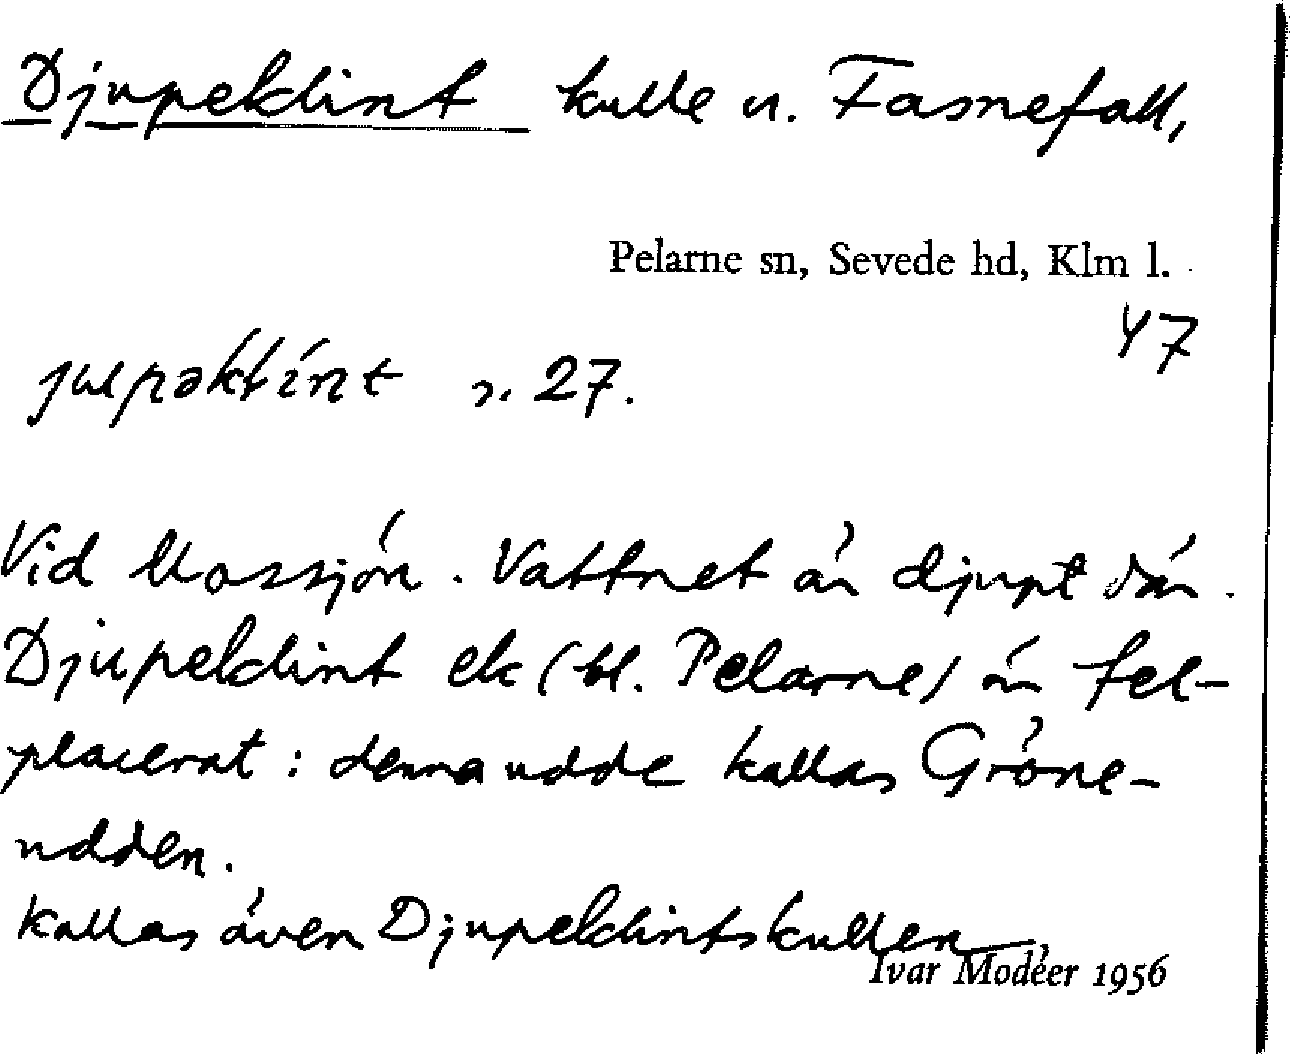 Djupeklint kulle u. Fasnefall,
Pelarne sn, Sevede hd, Klm l.
47
s. 27.
Vid Mossjön. Vattnet är djupt där.
Djupeklint ek (bl. Pelarne) är fel-
placerat: denna udde kallas Gröne-
udden.
kallas även Djupeklintskullen
Ivar Modéer 1956